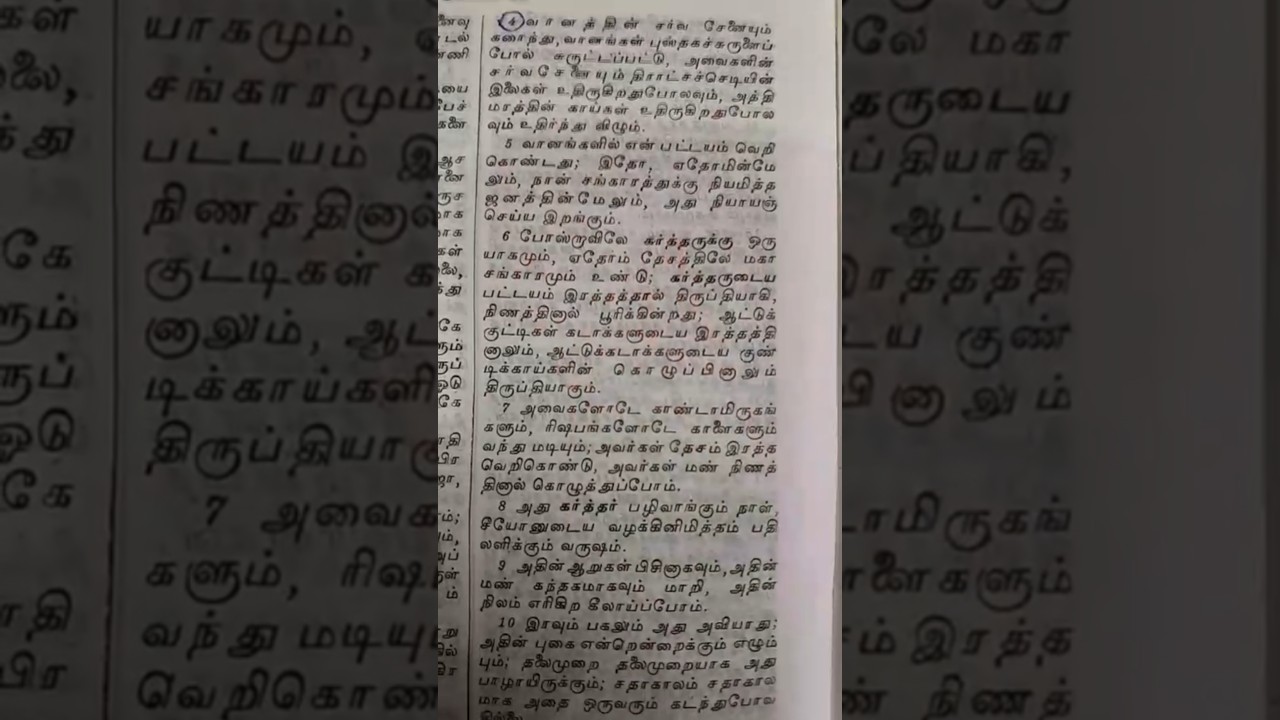 4 வானத்தின் சர்வ சேனையும்
கரைந்து, வானங்கள் புஸ்தகச்சுருளைப்
போல் சுருட்டப்பட்டு, அவைகளின்
சர்வசேனையும் திராட்சச்செடியின்
இலைகள் உதிருகிறதுபோலவும், அத்தி
மரத்தின் காய்கள் உதிருகிறதுபோல
வும் உதிர்ந்து விழும்.
5 வானங்களில் என் பட்டயம் வெறி
கொண்டது; இதோ, ஏதோமின்மே
லும், நான் சங்காரத்துக்கு நியமித்த
ஜனத்தின்மேலும், அது நியாயஞ்
செய்ய இறங்கும்.
6 போஸ்றாவிலே கர்த்தருக்கு ஒரு
யாகமும், ஏதோம் தேசத்திலே மகா
சங்காரமும் உண்டு; கர்த்தருடைய
பட்டயம் இரத்தத்தால் திருப்தியாகி,
நிணத்தினால் பூரிக்கின்றது; ஆட்டுக்
குட்டிகள் கடாக்களுடைய இரத்தத்தி
னாலும், ஆட்டுக்கடாக்களுடைய குண்
டிக்காய்களின் கொழுப்பினாலும்
திருப்தியாகும்.
7 அவைகளோடே காண்டாமிருகங்
களும், ரிஷபங்களோடே காளைகளும்
வந்து மடியும்; அவர்கள் தேசம் இரத்த
வெறிகொண்டு, அவர்கள் மண் நிணத்
தினால் கொழுத்துப்போம்.
8 அது கர்த்தர் பழிவாங்கும் நாள்,
சீயோனுடைய வழக்கினிமித்தம் பதி
லளிக்கும் வருஷம்.
9 அதின் ஆறுகள் பிசினாகவும், அதின்
மண் கந்தகமாகவும் மாறி, அதின்
நிலம் எரிகிற கீலாய்ப்போம்.
10 இரவும் பகலும் அது அவியாது;
அதின் புகை என்றென்றைக்கும் எழும்
பும்; தலைமுறை தலைமுறையாக அது
பாழாயிருக்கும்; சதாகாலம் சதாகால
மாக அதை ஒருவரும் கடந்துபோவ